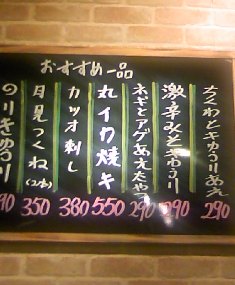 おすすめ一品
ちくわときゅうりあえ
290
激辛みそきゅうり
290
ネギとアゲあえたやつ
290
丸イカ焼キ
550
カツオ刺し
380
月見つくね(2本)
350
のりきゅうり
90